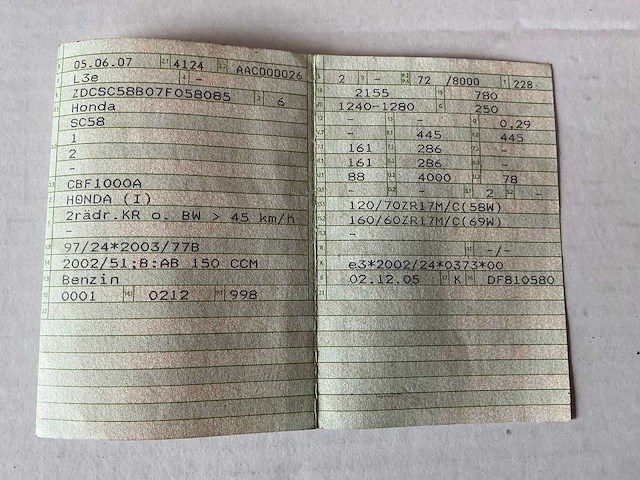 05.06.07 4124 AAC000026
L3e -
ZDCSC58B07F058085 6
Honda
SC58
1
2
-
CBF1000A
HONDA (I)
2rädr.KR o. BW > 45 km/h
-
97/24*2003/77B
2002/51;B:AB 150 CCM
Benzin
0001 0212 998
2 - 72 /8000 228
2155 780
1240-1280 250
- - 0.29
- 445 445
161 286 -
161 286 -
88 4000 78
- - 2 -
120/70ZR17M/C(58W)
160/60ZR17M/C(69W)
-
-/-
e3*2002/24*0373*00
02.12.05 K DF810580